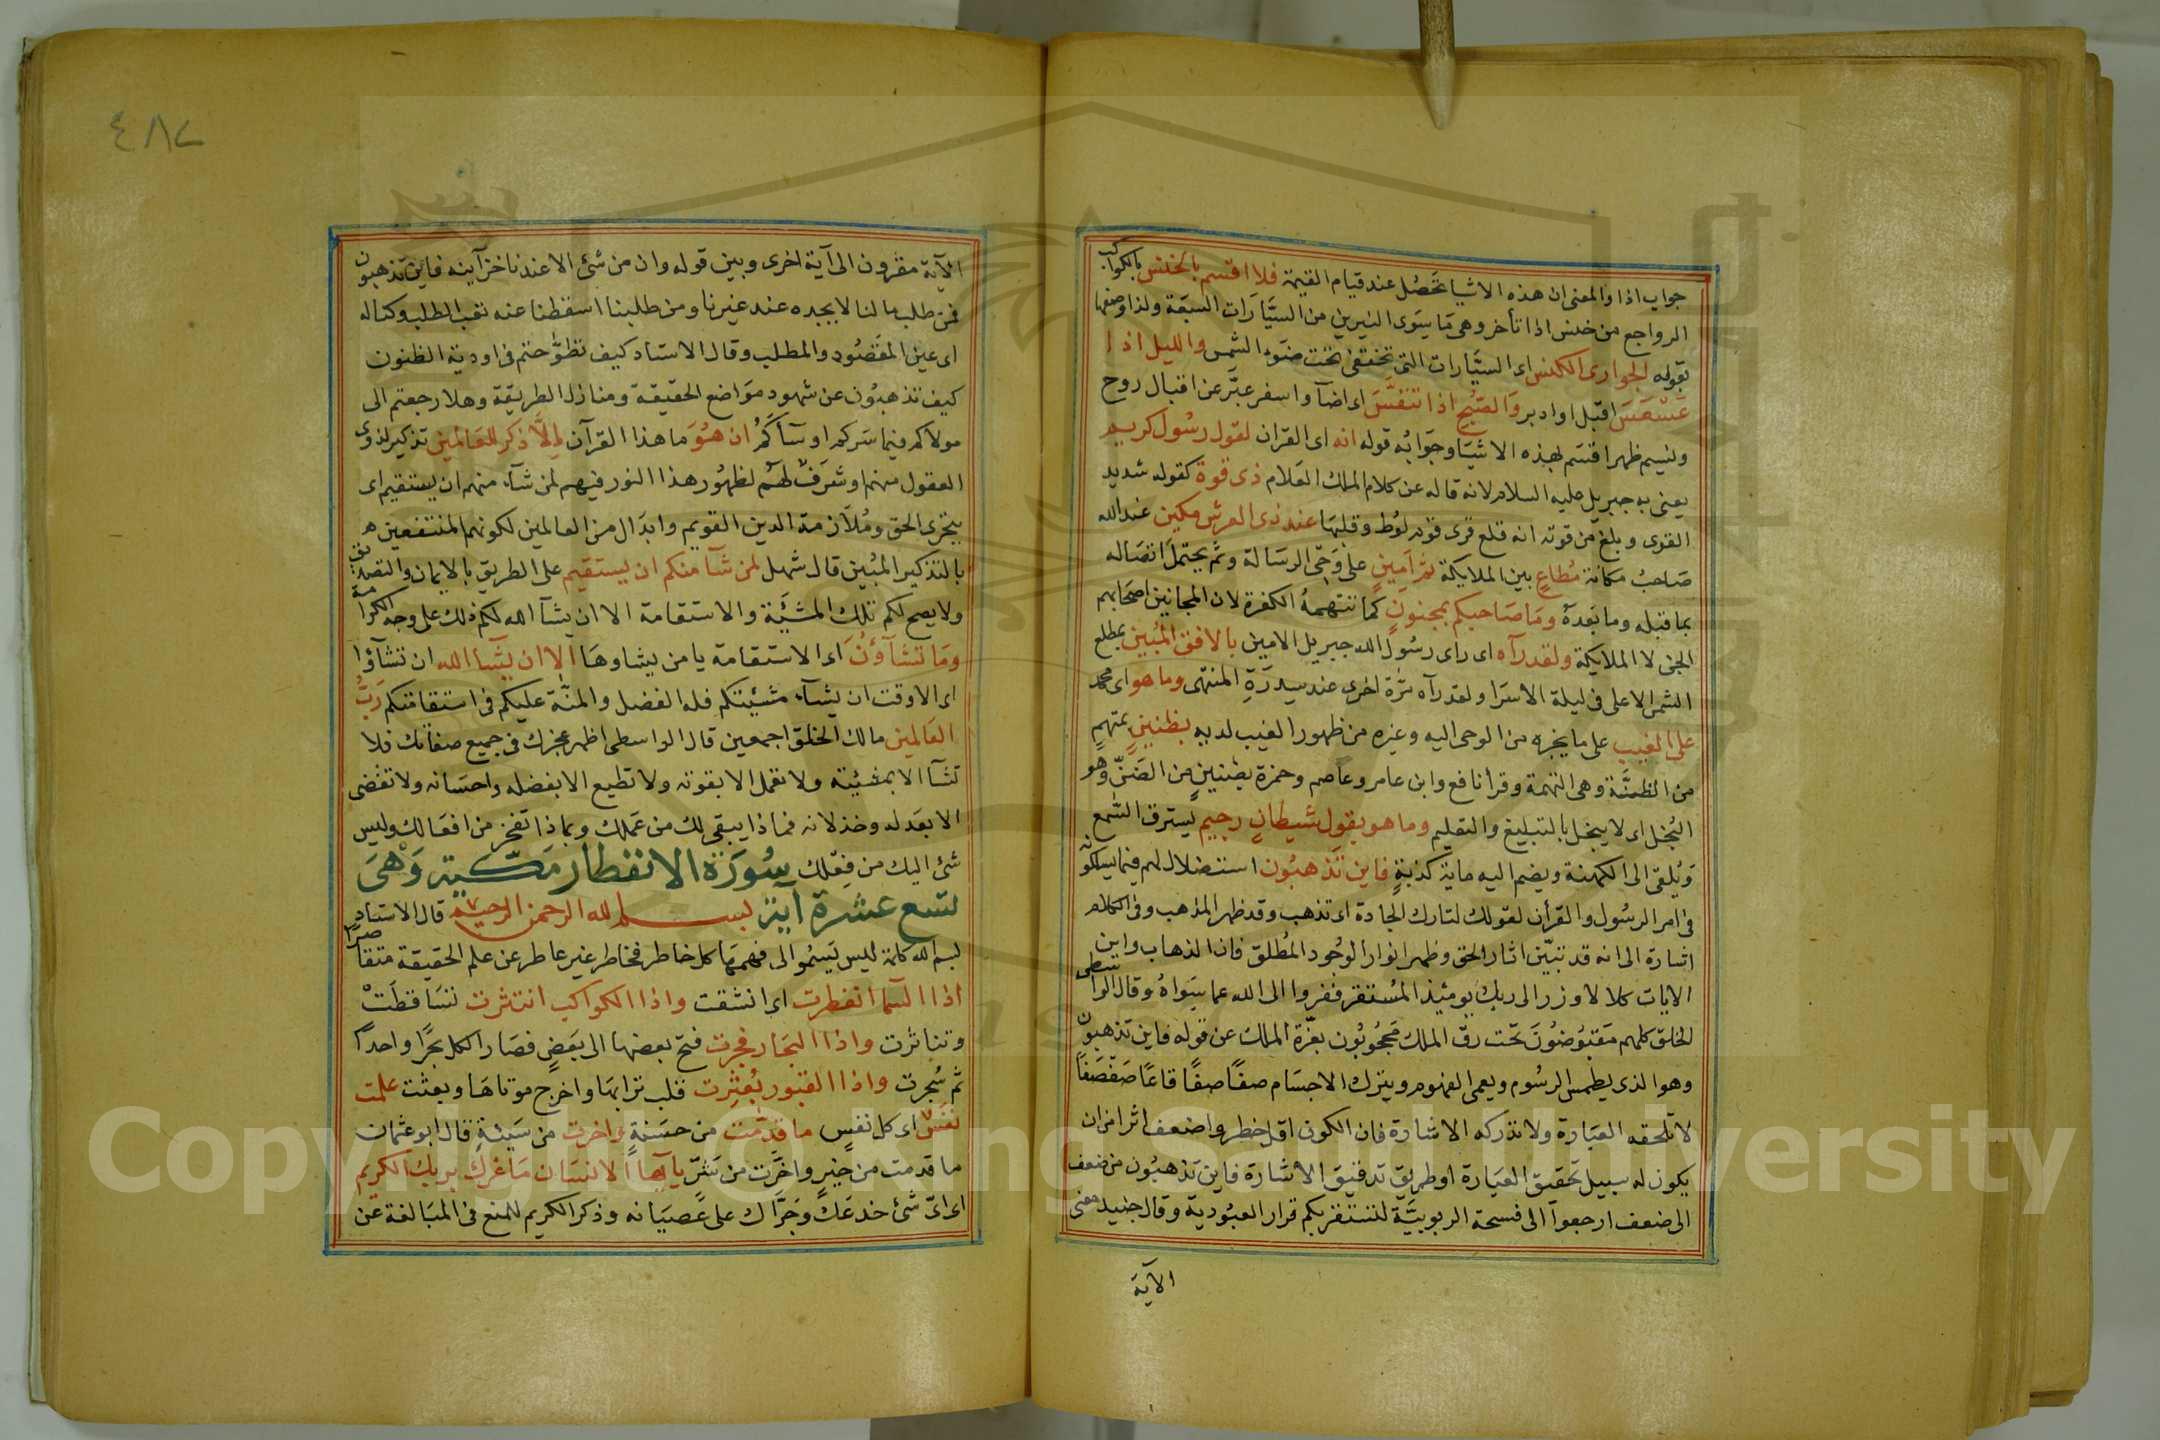 جواب اذا والمعنى ان هذه الاشيا تحصل عند قيام القيمة فلا اقسم بالخنس بالكواكب
الرواجع من خنس اذا تأخر وهي ما سوى النيرين من السيارات السبعة ولذا وصفها
بقوله الجوارى الكنس اى السيارات التى تختفى تحت ضوء الشمس والليل اذا
عسعس اقبل او ادبر والصبح اذا تنفس اى اضآ واسفر عبر عن اقبال روح
ونسيم ظهر اقسم بهذه الاشيا وجوابه قوله انه اى القران لقول رسول كريم
يعنى به جبريل عليه السلام لانه قاله عن كلام الملك العلام ذى قوة كقوله شديد
القوى وبلغ من قوته انه قلع قرى قوم لوط وقلبها عند ذى العرش مكين عند الله
صاحب مكانة مطاع بين الملايكة ثم امين على وحى الرسالة وثم يحتمل اتصاله
بما قبله وما بعده وما صاحبكم بمجنون كما تتهمه الكفرة لان المجانين اصحابهم
الجن لا الملايكة ولقد رآه اى راى رسول الله جبريل الامين بالافق المبين بمطلع
الشمس الاعلى فى ليلة الاسرا ولقد رآه مرة اخرى عند سدرة المنتهى وما هو اى محمد
على الغيب على ما يخبره من الوحى اليه وغيره من ظهور الغيب لديه بظنين بمتهم
من الظنة وهى التهمة وقرأ نافع وابن عامر وعاصم وحمزة بضنين من الضن وهو
البخل اى لا يبخل بالتبليغ والتعليم وما هو بقول شيطان رجيم يسترق السمع
ويلقى الى الكهنة ويضم اليه ماية كذبة فاين تذهبون استضلال لهم فيما يسلكونه
فى امر الرسول والقرأن لقولك لتارك الجادة اى تذهب وقد ظهر المذهب وفى الكلام
اشارة الى انه قد تبين اثار الحق وظهر انوار الوجود المطلق فان الذهاب واين
الايات كلا لا وزر الى ربك يومئذ المستقر ففروا الى الله عما سواه وقال الواسطى
الخلق كلهم مقبوضون تحت رق الملك محجوبون بعزة الملك عن قوله فاين تذهبون
وهو الذى يطمس الرسوم ويعمى الفهوم ويترك الاجسام صفا صفا قاعا صفصفا
لا تلحقه العبارة ولا تدركه الاشارة فان الكون اقل خطر واضعف اثرا من ان
يكون له سبيل تحقيق العبارة او طريق تدقيق الاشارة فاين تذهبون من ضعف
الى ضعف ارجعوا الى فسحة الربوبية لتستقر بكم قرار العبودية وقال جنيد معنى
الآية
٤٨٢
الآية مقرون الى آية اخرى وبين قوله وان من شئ الا عندنا خزآينه فاين تذهبون
فمن طلب ما لنا لا يجده عند غيرنا ومن طلبنا اسقطنا عنه تعب الطلب وكنا له
اى عين المقصود والمطلب وقال الاستاد كيف تطوحتم فى اودية الظنون
كيف تذهبون عن شهود مواضع الحقيقة ومنازل الطريقة وهلا رجعتم الى
مولاكم فيما سركم او سآكم ان هو ما هذا القرآن الا ذكر للعالمين تذكير لذوى
العقول منهم او شرف لهم لظهور هذا النور فيهم لمن شآء منهم ان يستقيم اى
يتحرى الحق وملازمة الدين القويم وابدال من العالمين لكونهم المنتفعين
بالتذكير المبين قال سهل لمن شآ منكم ان يستقيم على الطريق بالايمان والتصديق
ولا يصح لكم تلك المشية والاستقامة الا ان يشآ الله لكم ذلك على وجه الكرامة
وما تشآؤن اى الاستقامة يا من يشاوها الا ان يشآ الله ان تشآؤا
اى الا وقت ان يشآء مشئيتكم فله الفضل والمنة عليكم فى استقامتكم رب
العالمين مالك الخلق اجمعين قال الواسطى اظهر عجزك فى جميع صفاتك فلا
تشآ الا بمشئيته ولا تعمل الا بقوته ولا تطيع الا بفضله واحسانه ولا تقضى
الا بعدله وخذلانه فماذا يبقى لك من عملك وبماذا تفخر من افعالك وليس
شئ اليك من فعلك سورة الانفطار مكية وهى
تسع عشرة آية بسم الله الرحمن الرحيم قال الاستاد
بسم الله كلمة ليس يسموا الى فهمها كل خاطر فخاطر غير عاطر عن علم الحقيقة متقاصر
اذا السما انفطرت اى انشقت واذا الكواكب انتثرت تساقطت
وتناثرت واذا البحار فجرت فتح بعضها الى بعض فصار الكل بحرا واحدا
ثم سجرت واذا القبور بعثرت قلب ترابها واخرج موتاها وبعثت علمت
نفس اى كل نفس ما قدمت من حسنة واخرت من سيئة قال ابو عثمان
ما قدمت من خير واخرت من شر يا ايها الانسان ما غرك بربك الكريم
اى اى شئ خدعك وجراك على عصيانه وذكر الكريم للمنع فى المبالغة عن
Copyright © King Saud University